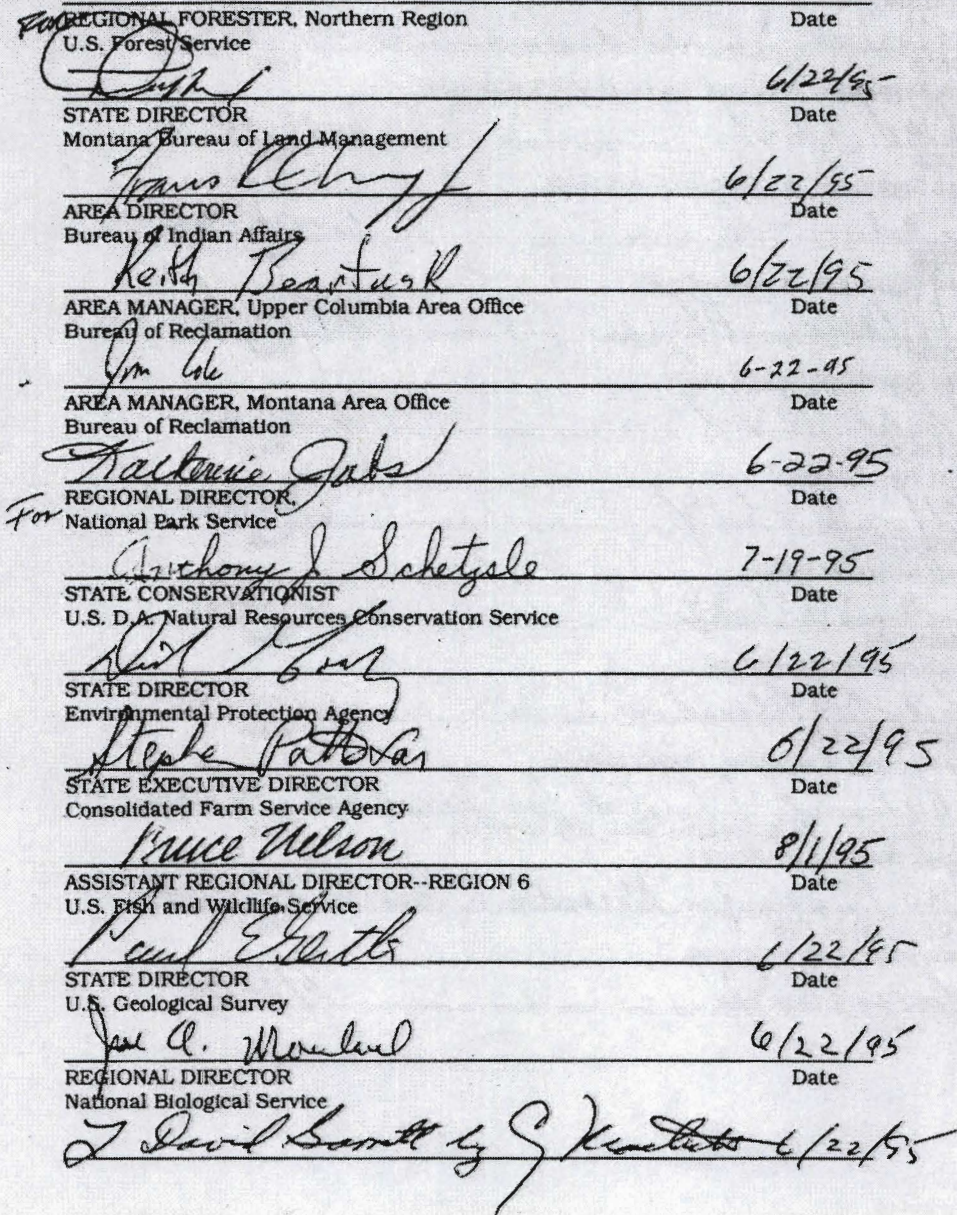 For REGIONAL FORESTER, Northern Region Date
U.S. Forest Service
6/22/95
STATE DIRECTOR Date
Montana Bureau of Land Management
6/22/95
AREA DIRECTOR Date
Bureau of Indian Affairs
Keith Beartusk 6/22/95
AREA MANAGER, Upper Columbia Area Office Date
Bureau of Reclamation
Jim Cole 6-22-95
AREA MANAGER, Montana Area Office Date
Bureau of Reclamation
Jabs 6-22-95
REGIONAL DIRECTOR, Date
For National Park Service
Anthony J Schetzsle 7-19-95
STATE CONSERVATIONIST Date
U.S. D.A. Natural Resources Conservation Service
6/22/95
STATE DIRECTOR Date
Environmental Protection Agency
6/22/95
STATE EXECUTIVE DIRECTOR Date
Consolidated Farm Service Agency
Bruce Nelson 8/1/95
ASSISTANT REGIONAL DIRECTOR--REGION 6 Date
U.S. Fish and Wildlife Service
Paul E 6/22/95
STATE DIRECTOR Date
U.S. Geological Survey
Joe A. 6/22/95
REGIONAL DIRECTOR Date
National Biological Service
David by 6/22/95